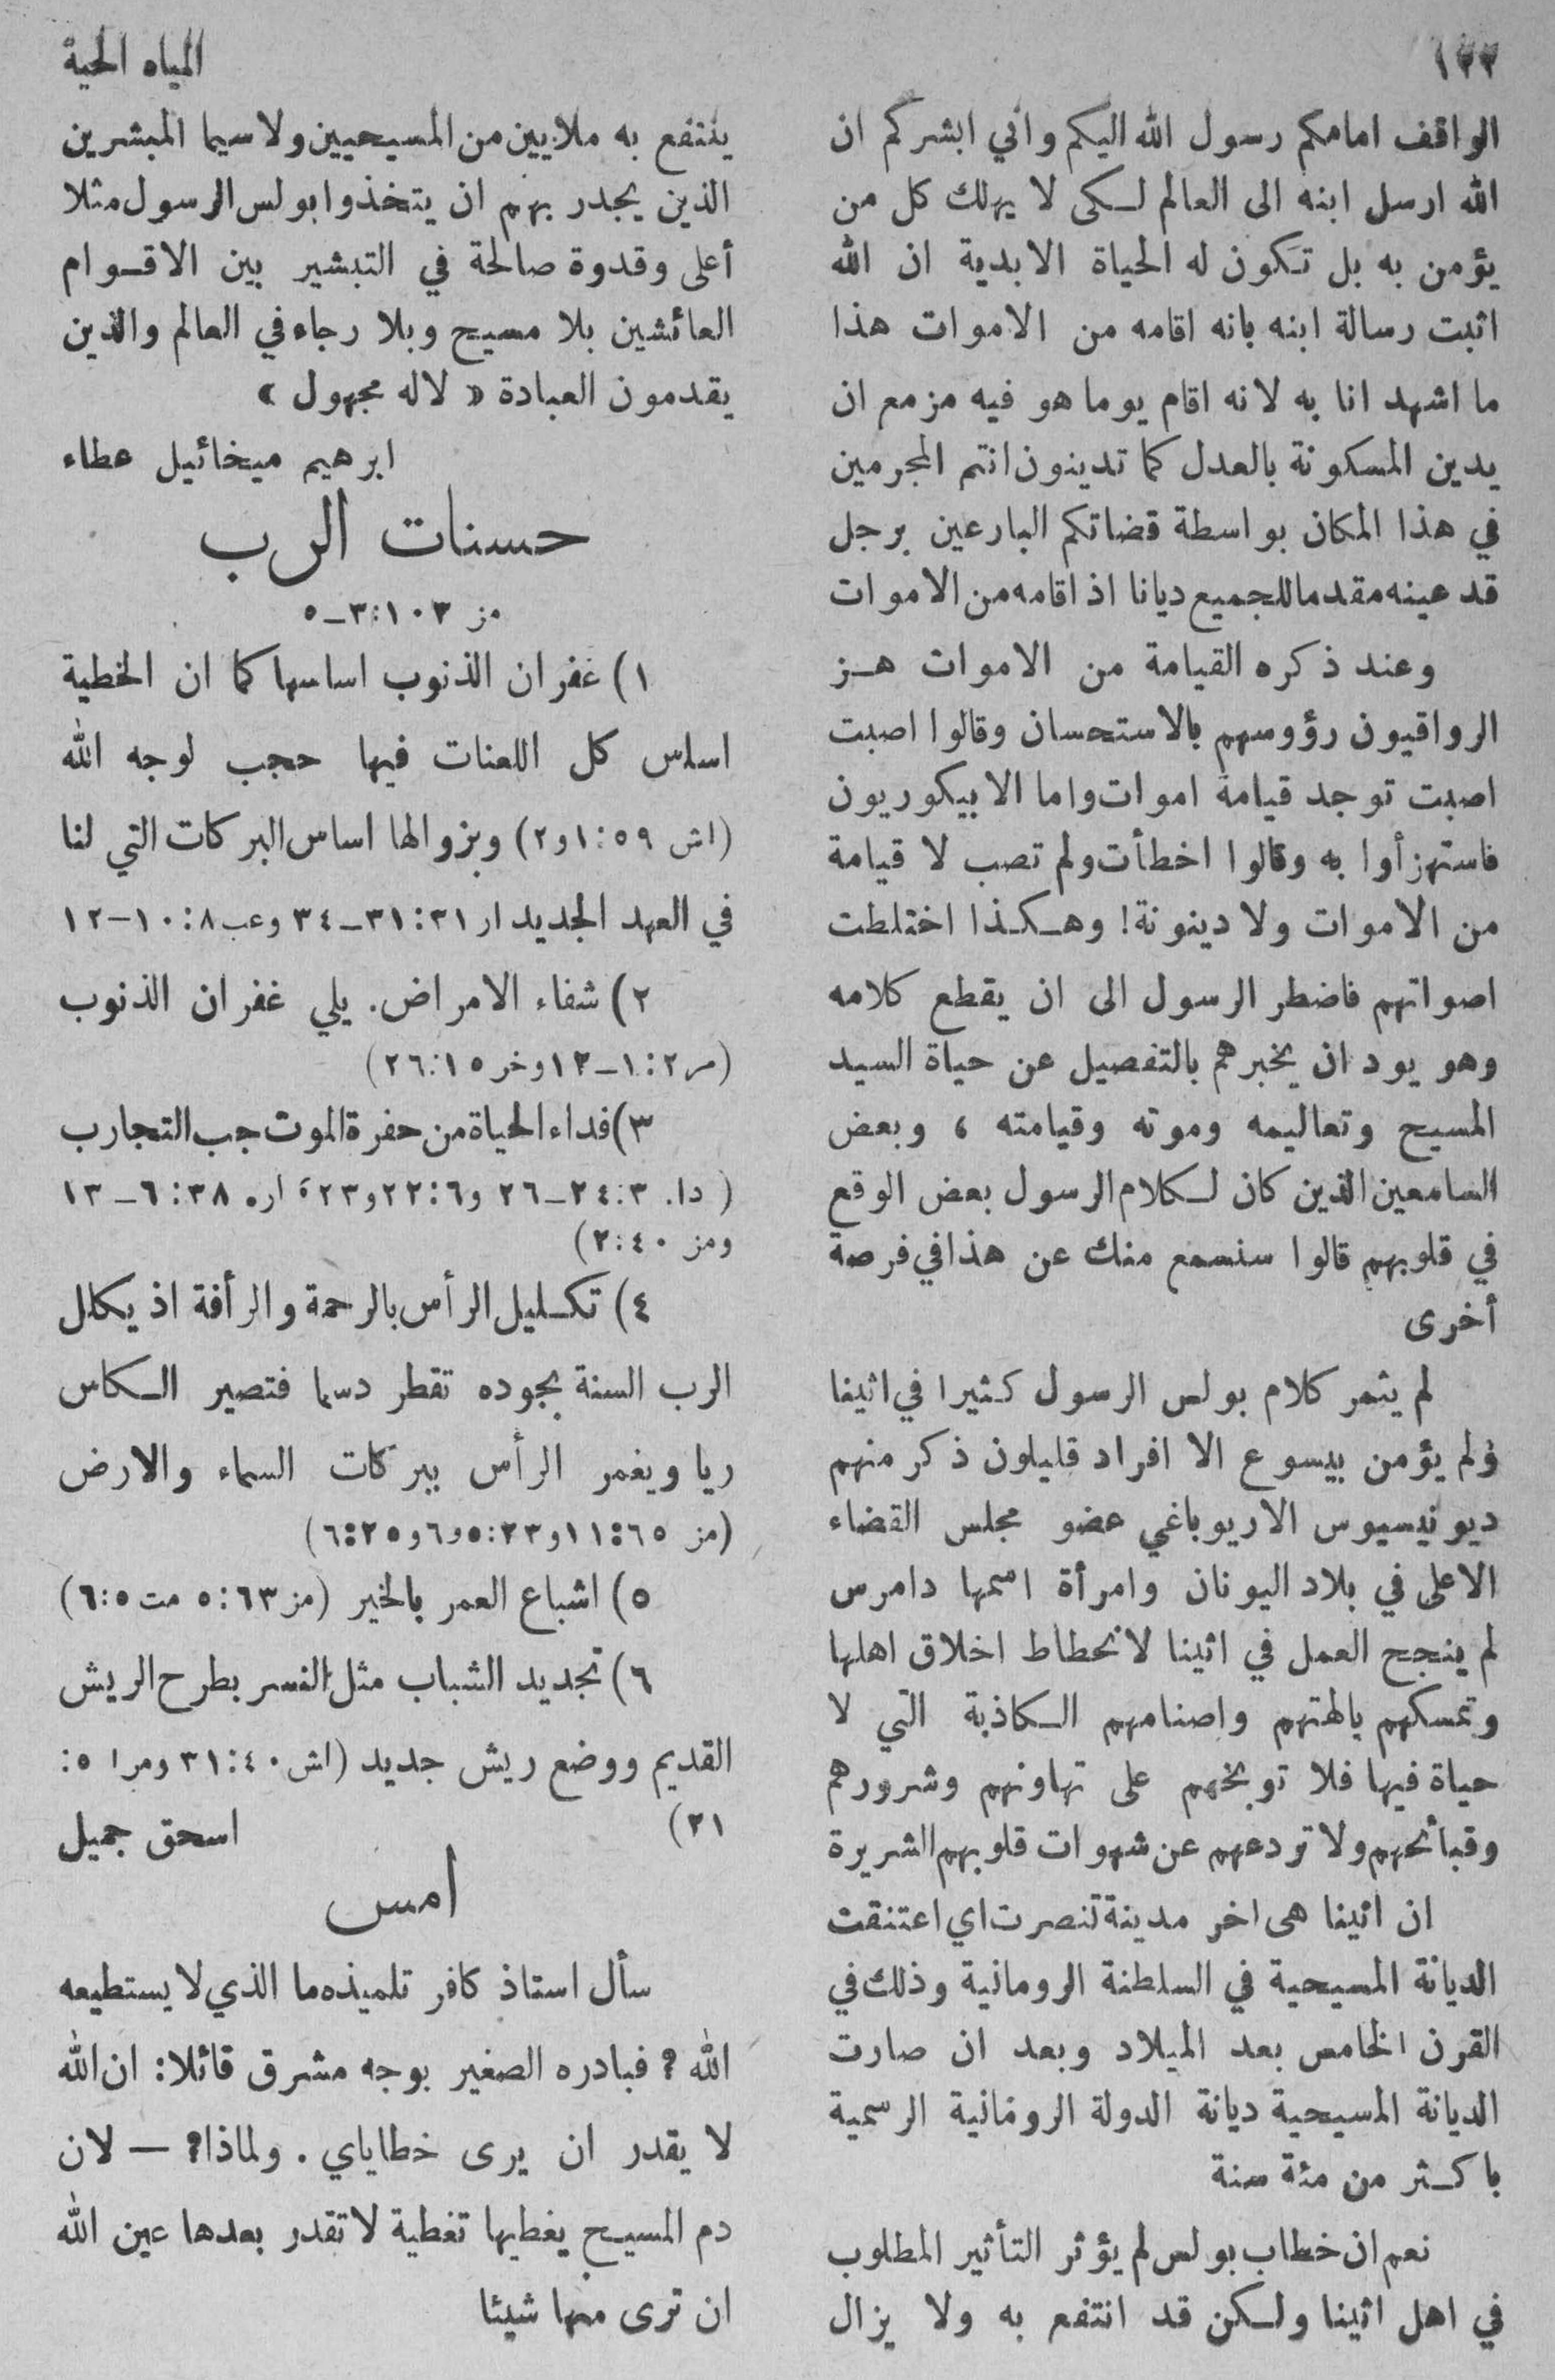 ١٢٢
المياه الحية
الواقف امامكم رسول الله اليكم واني ابشركم ان
الله ارسل ابنه الى العالم لكى لا يهلك كل من
يؤمن به بل تكون له الحياة الابدية ان الله
اثبت رسالة ابنه بانه اقامه من الاموات هذا
ما اشهد انا به لانه اقام يوما هو فيه مزمع ان
يدين المسكونة بالعدل كما تدينون انتم المجرمين
في هذا المكان بواسطة قضاتكم البارعين برجل
قد عينه مقدما للجميع ديانا اذ اقامه من الاموات
وعند ذكره القيامة من الاموات هز
الرواقيون رؤوسهم بالاستحسان وقالوا اصبت
اصبت توجد قيامة اموات واما الابيكوريون
فاستهزأوا به وقالوا اخطأت ولم تصب لا قيامة
من الاموات ولا دينونة! وهكذا اختلطت
اصواتهم فاضطر الرسول الى ان يقطع كلامه
وهو يود ان يخبرهم بالتفصيل عن حياة السيد
المسيح وتعاليمه وموته وقيامته ، وبعض
السامعين الذين كان لكلام الرسول بعض الوقع
في قلوبهم قالوا سنسمع منك عن هذا في فرصة
أخرى
لم يثمر كلام بولس الرسول كثيرا في اثينا
ولم يؤمن بيسوع الا افراد قليلون ذكر منهم
ديونيسيوس الاريوباغي عضو مجلس القضاء
الاعلى في بلاد اليونان وامرأة اسمها دامرس
لم ينجح العمل في اثينا لانحطاط اخلاق اهلها
وتمسكهم بالهتهم واصنامهم الكاذبة التي لا
حياة فيها فلا توبخهم على تهاونهم وشرورهم
وقبائحهم ولا تردعهم عن شهوات قلوبهم الشريرة
ان اثينا هى اخر مدينة تنصرت اي اعتنقت
الديانة المسيحية في السلطنة الرومانية وذلك في
القرن الخامس بعد الميلاد وبعد ان صارت
الديانة المسيحية ديانة الدولة الرومانية الرسمية
باكثر من مئة سنة
نعم ان خطاب بولس لم يؤثر التأثير المطلوب
في اهل اثينا ولكن قد انتفع به ولا يزال
ينتفع به ملايين من المسيحيين ولا سيما المبشرين
الذين يجدر بهم ان يتخذوا بولس الرسول مثلا
أعلى وقدوة صالحة في التبشير بين الاقوام
العائشين بلا مسيح وبلا رجاء في العالم والذين
يقدمون العبادة « لاله مجهول »
ابرهيم ميخائيل عطاء
حسنات الرب
مز ١٠٣:٣-٥
١) غفران الذنوب اساسها كما ان الخطية
اساس كل اللعنات فيها حجب لوجه الله
(اش ٥٩:١و٢) وبزوالها اساس البركات التي لنا
في العهد الجديد ار ٣١:٣١-٣٤ وعب ٨:١٠-١٢
٢) شفاء الامراض. يلي غفران الذنوب
(مر ٢:١-١٢ وخر ١٥:٢٦)
٣) فداء الحياة من حفرة الموت جب التجارب
( دا. ٣:٢٤-٢٦ و٦:٢٢و٢٣، ار. ٣٨:٦-١٣
ومز ٤٠:٢)
٤) تكليل الرأس بالرحمة والرأفة اذ يكلل
الرب السنة بجوده تقطر دسما فتصير الكاس
ريا ويغمر الرأس ببركات السماء والارض
(مز ٦٥:١١و٢٣:٥و٦و٢٥:٦)
٥) اشباع العمر بالخير (مز ٦٣:٥ مت ٥:٦)
٦) تجديد الشباب مثل النسر بطرح الريش
القديم ووضع ريش جديد (اش ٤٠:٣١ ومرا ٥:
٢١)
اسحق جميل
امس
سأل استاذ كافر تلميذه ما الذي لا يستطيعه
الله ؟ فبادره الصغير بوجه مشرق قائلا: ان الله
لا يقدر ان يرى خطاياي . ولماذا؟ — لان
دم المسيح يغطيها تغطية لا تقدر بعدها عين الله
ان ترى منها شيئا